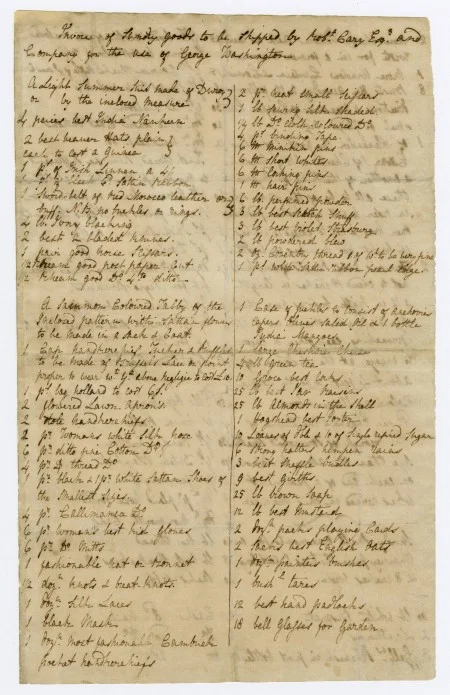 Invoice of Sundry goods to be Shipped by Robt. Cary Esqr. and
Company for the use of George Washington
A Light Summer Suit made of Duroy
or by the inclosed measure
4 pieces best India Nankeen
2 best beaver Hats plain
each to cost a Guinea
1 ps. of Irish Linnen a 4/
1 ps. of black Satten Ribbon
Sword belt of red Morocco Leather or
buff. No buckles or rings.
4 lb Ivory blacking
2 best 2 bladed Knives.
1 pair good horse Scissars.
1 Ream good post paper Cut
1 Ream good Do. 4to ditto
A Salmon Coloured Tabby of the
Inclosed pattern with Sattan flowers
to be made in a Sack & Coat.
1 Cap handkerchief Tucker & Ruffles
to be made of Brussels Lace or point
proper to wear wth. ye. above negligee to cost £20
1 ps. bag hollard to cost 6/
2 flowered Lawn Aprons
2 handkerchiefs
2 pr. Womans white Silk hose
6 pr. ditto fine Cotton Do.
4 pr. Do. thread Do.
1 pr. black & 1 pr. white Sattan Shoes of
the Smallest Sizes.
4 pr. Callimanca Do.
6 pr. womans best kid gloves
6 pr. Do. Mitts
1 fashionable hat or bonnet
12 dozn. knots & breast knots
1 dozn. Silk Laces
1 black Mask
1 dozn. most fashionable Cambrick
pocket handkerchiefs
2 pr. neat Small Scissars
1 lb Sewing Silk Shaded
1/4 lb Do. Cloth Coloured Do.
4 ps. binding Tape
6 M Minikin pins
6 M Short Whites
6 M Corking pins
1 M hair pins
6 lb perfumed powder
3 lb best Scotch Snuff
3 lb best violet Strasburg
2 lb powdered blew
2 oz. Coventry thread
1 ps. white Sattan ribbon pearl Edge.
1 Case of Pickles to consist of Anchovies
Capers Olives Salad Oil & 1 bottle
India Mangoes
1 large Cheshire Cheese
4 lb Green tea
10 Groce best corks
25 lb best Jar Raisins
25 lb Almonds in the Shell
1 hogshead best Porter
10 Loaves of Dble & 10 of Single refined Sugar
6 Strong halters hempen reins
3 best Snaffle bridles
9 best girths
25 lb brown Soap
12 lb best Mustard
2 dozn. packs playing Cards
2 Sacks best English Oats
1 dozn. painters brushes
1 bushl. tares
12 best hand padlocks
18 bell Glasses for Garden